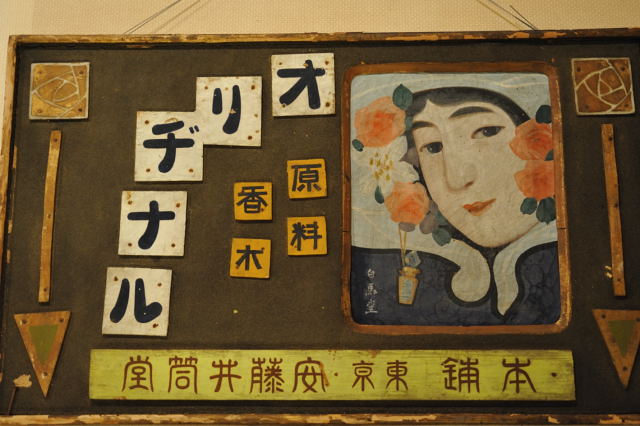 オリヂナル
原料
香木
白馬堂
本舗 東京・安藤井筒堂